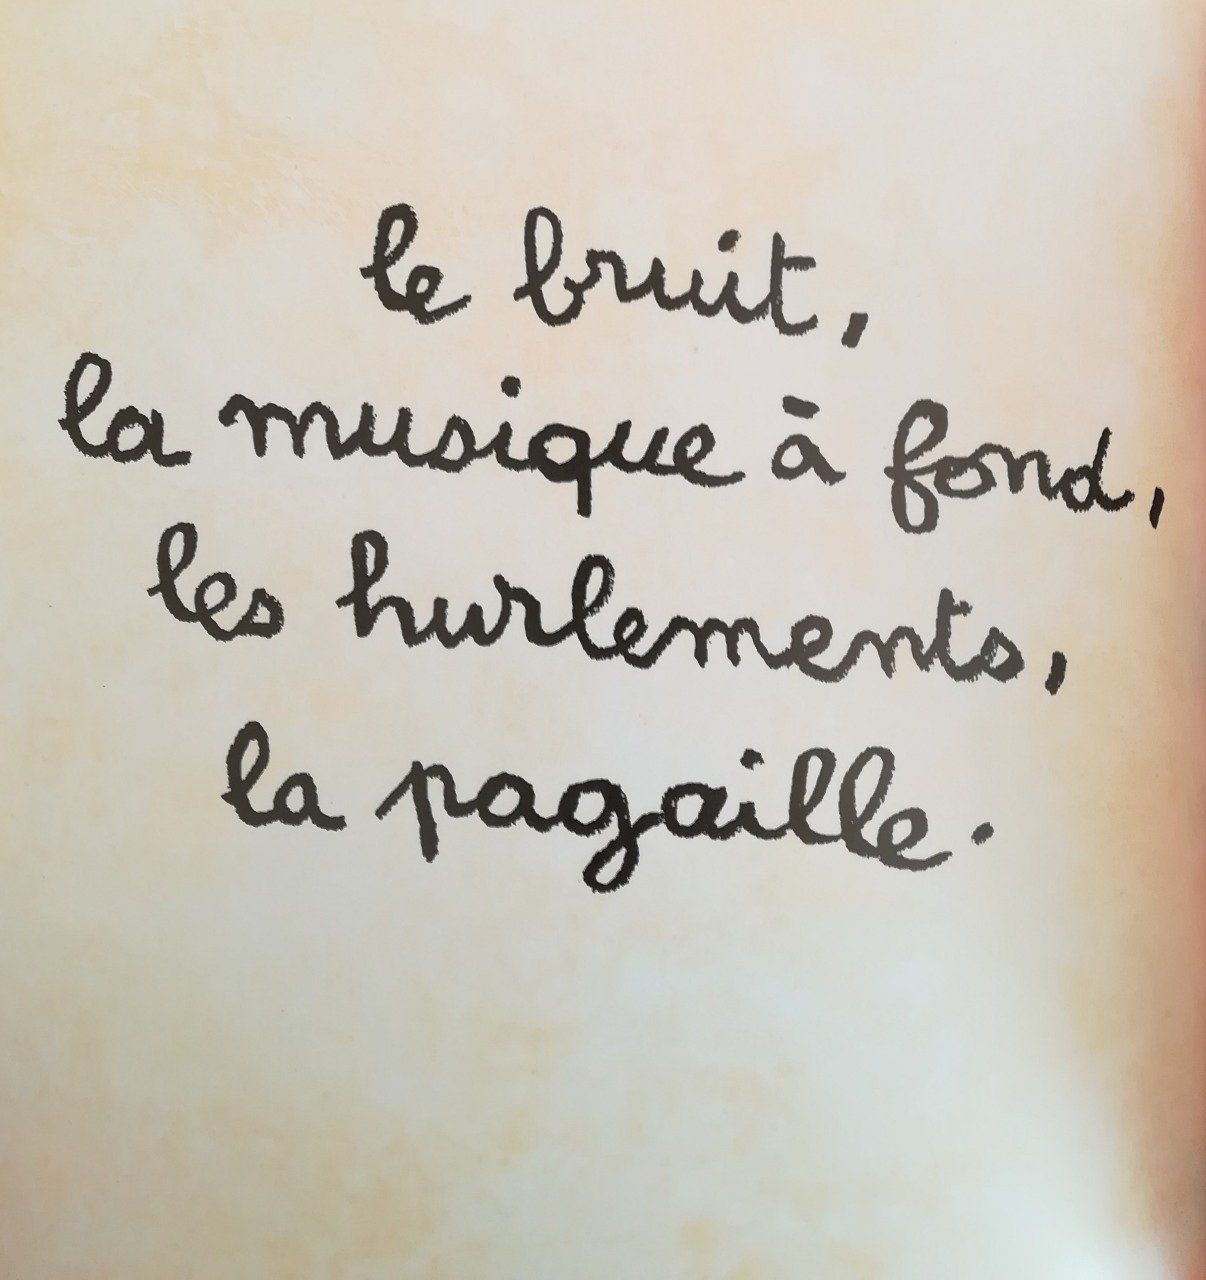 le bruit,
la musique à fond,
les hurlements,
la pagaille.